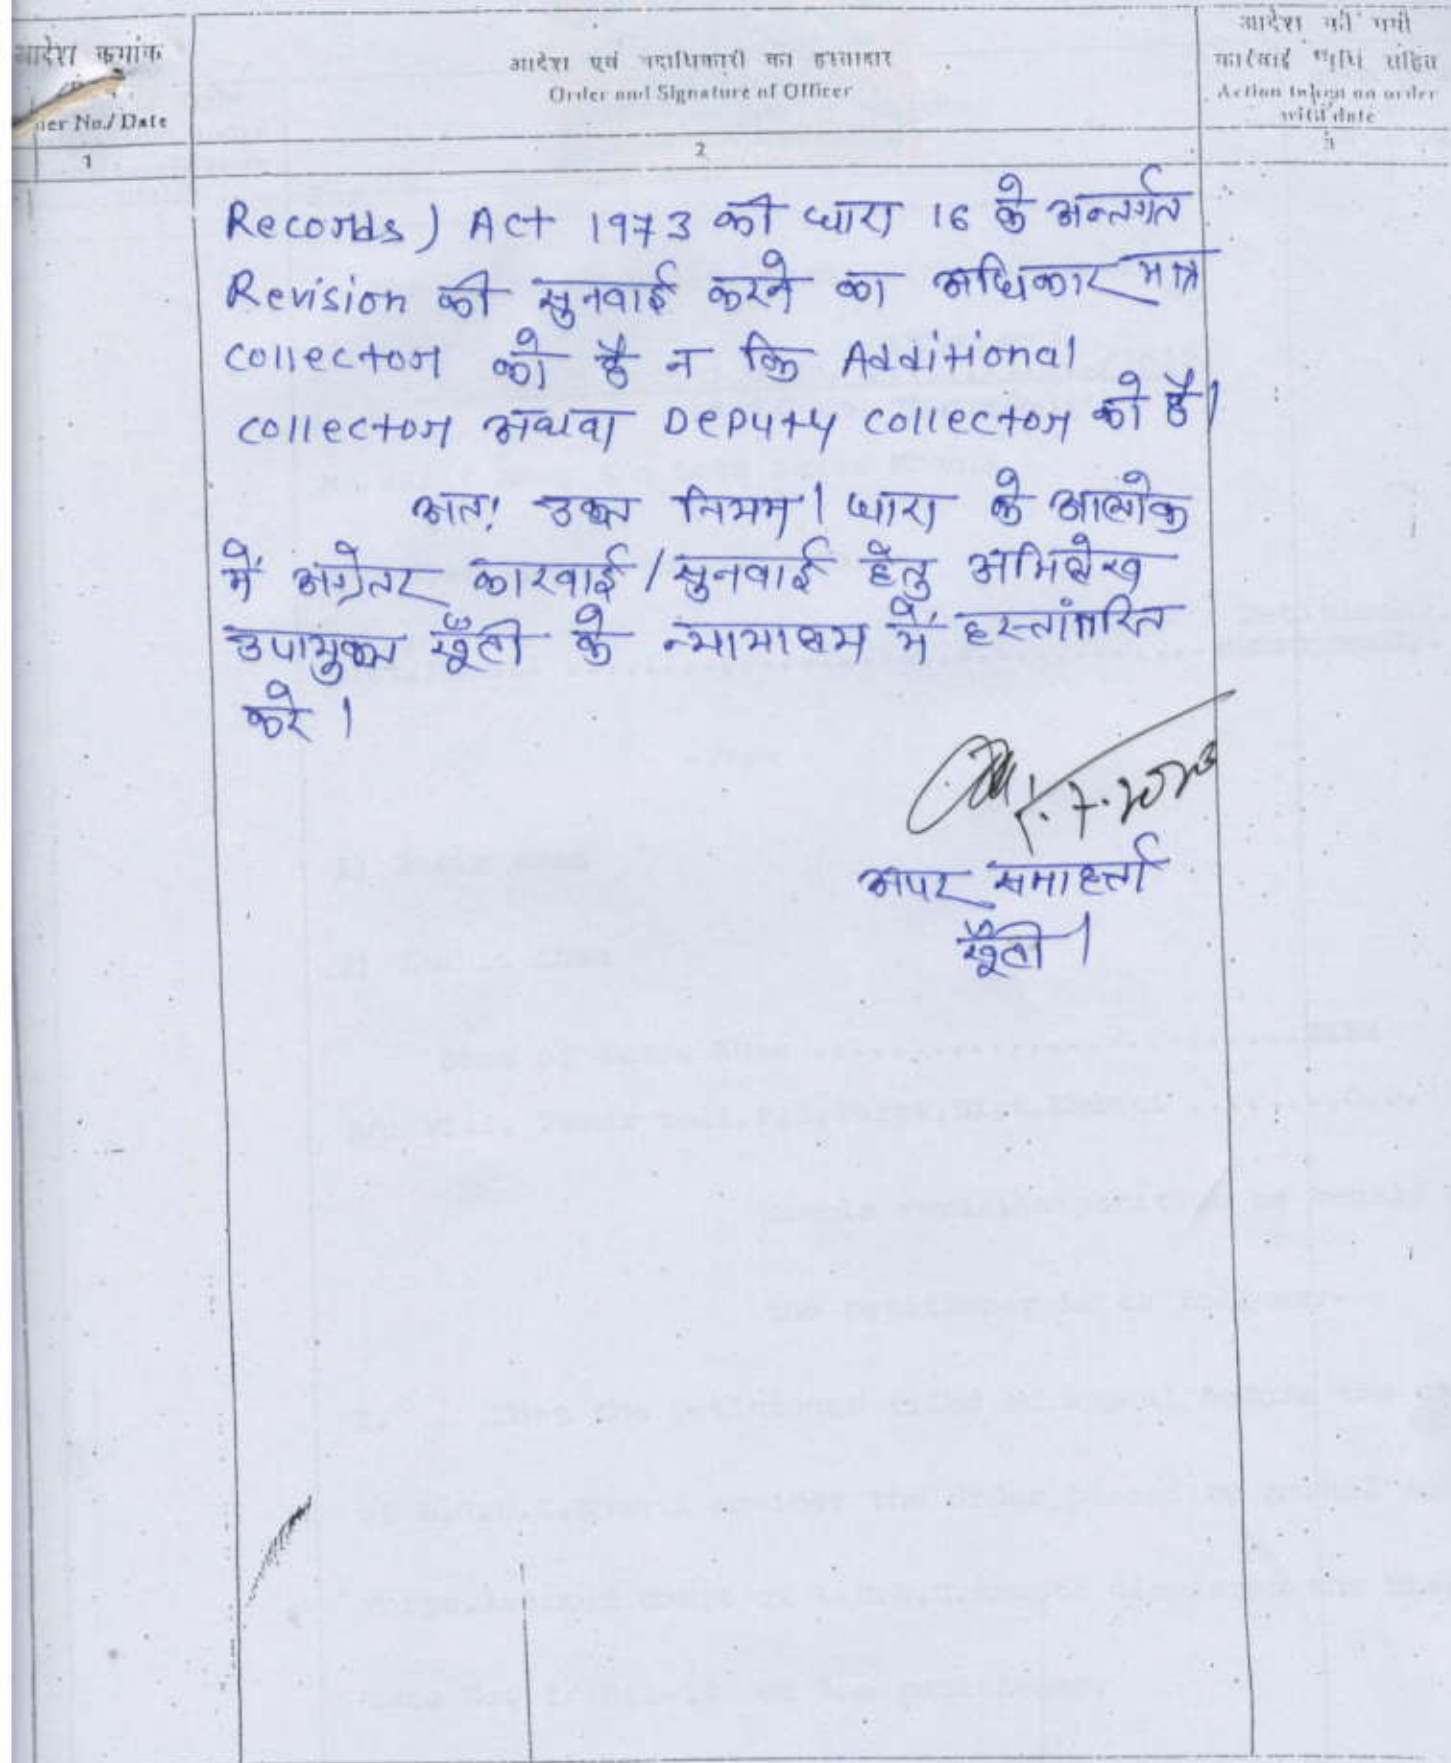 आदेश क्रमांक
Order No./ Date
1
आदेश एवं पदाधिकारी का हस्ताक्षर
Order and Signature of Officer
2
आदेश की गयी
कार्रवाई तिथि सहित
Action taken on order
with date
3
Records) Act 1973 की धारा 16 के अन्तर्गत
Revision की सुनवाई करने का अधिकार मात्र
Collector को है न कि Additional
Collector अथवा Deputy Collector को है।
अत: उक्त नियम। धारा के आलोक
में अग्रेतर कारवाई / सुनवाई हेतु अभिलेख
उपायुक्त खूँटी के न्यायालय में हस्तांतरित
करे।
7.2023
अपर समाहर्त्ता
खूँटी।